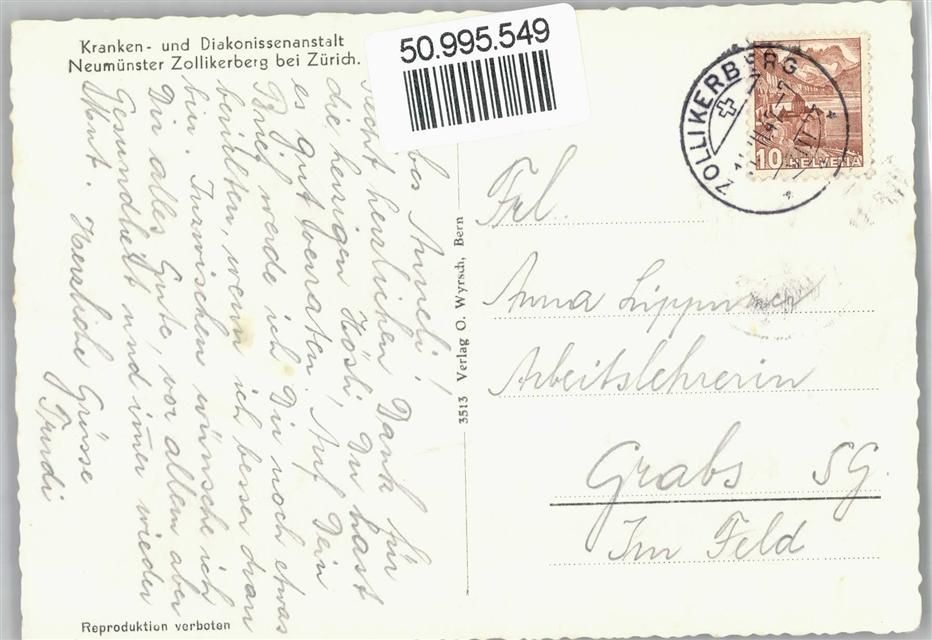 Kranken- und Diakonissenanstalt
Neumünster Zollikerberg bei Zürich.
50.995.549
ZOLLIKERBERG
10 HELVETIA
Anneli!
Recht herzlichen Dank für
die herzigen Hösli, Du hast
es gut beraten. Auf Dein
Brief werde ich Dir noch etwas
berichten, wenn ich besser dran
bin. Inzwischen wünsche ich
Dir alles Gute, vor allem aber
Gesundheit und imer wieder
Mut. Herzliche Grüsse
Trudi
3513 Verlag O. Wyrsch, Bern
Frl.
Anna Lippuner
Arbeitslehrerin
Grabs SG.
Im Feld
Reproduktion verboten